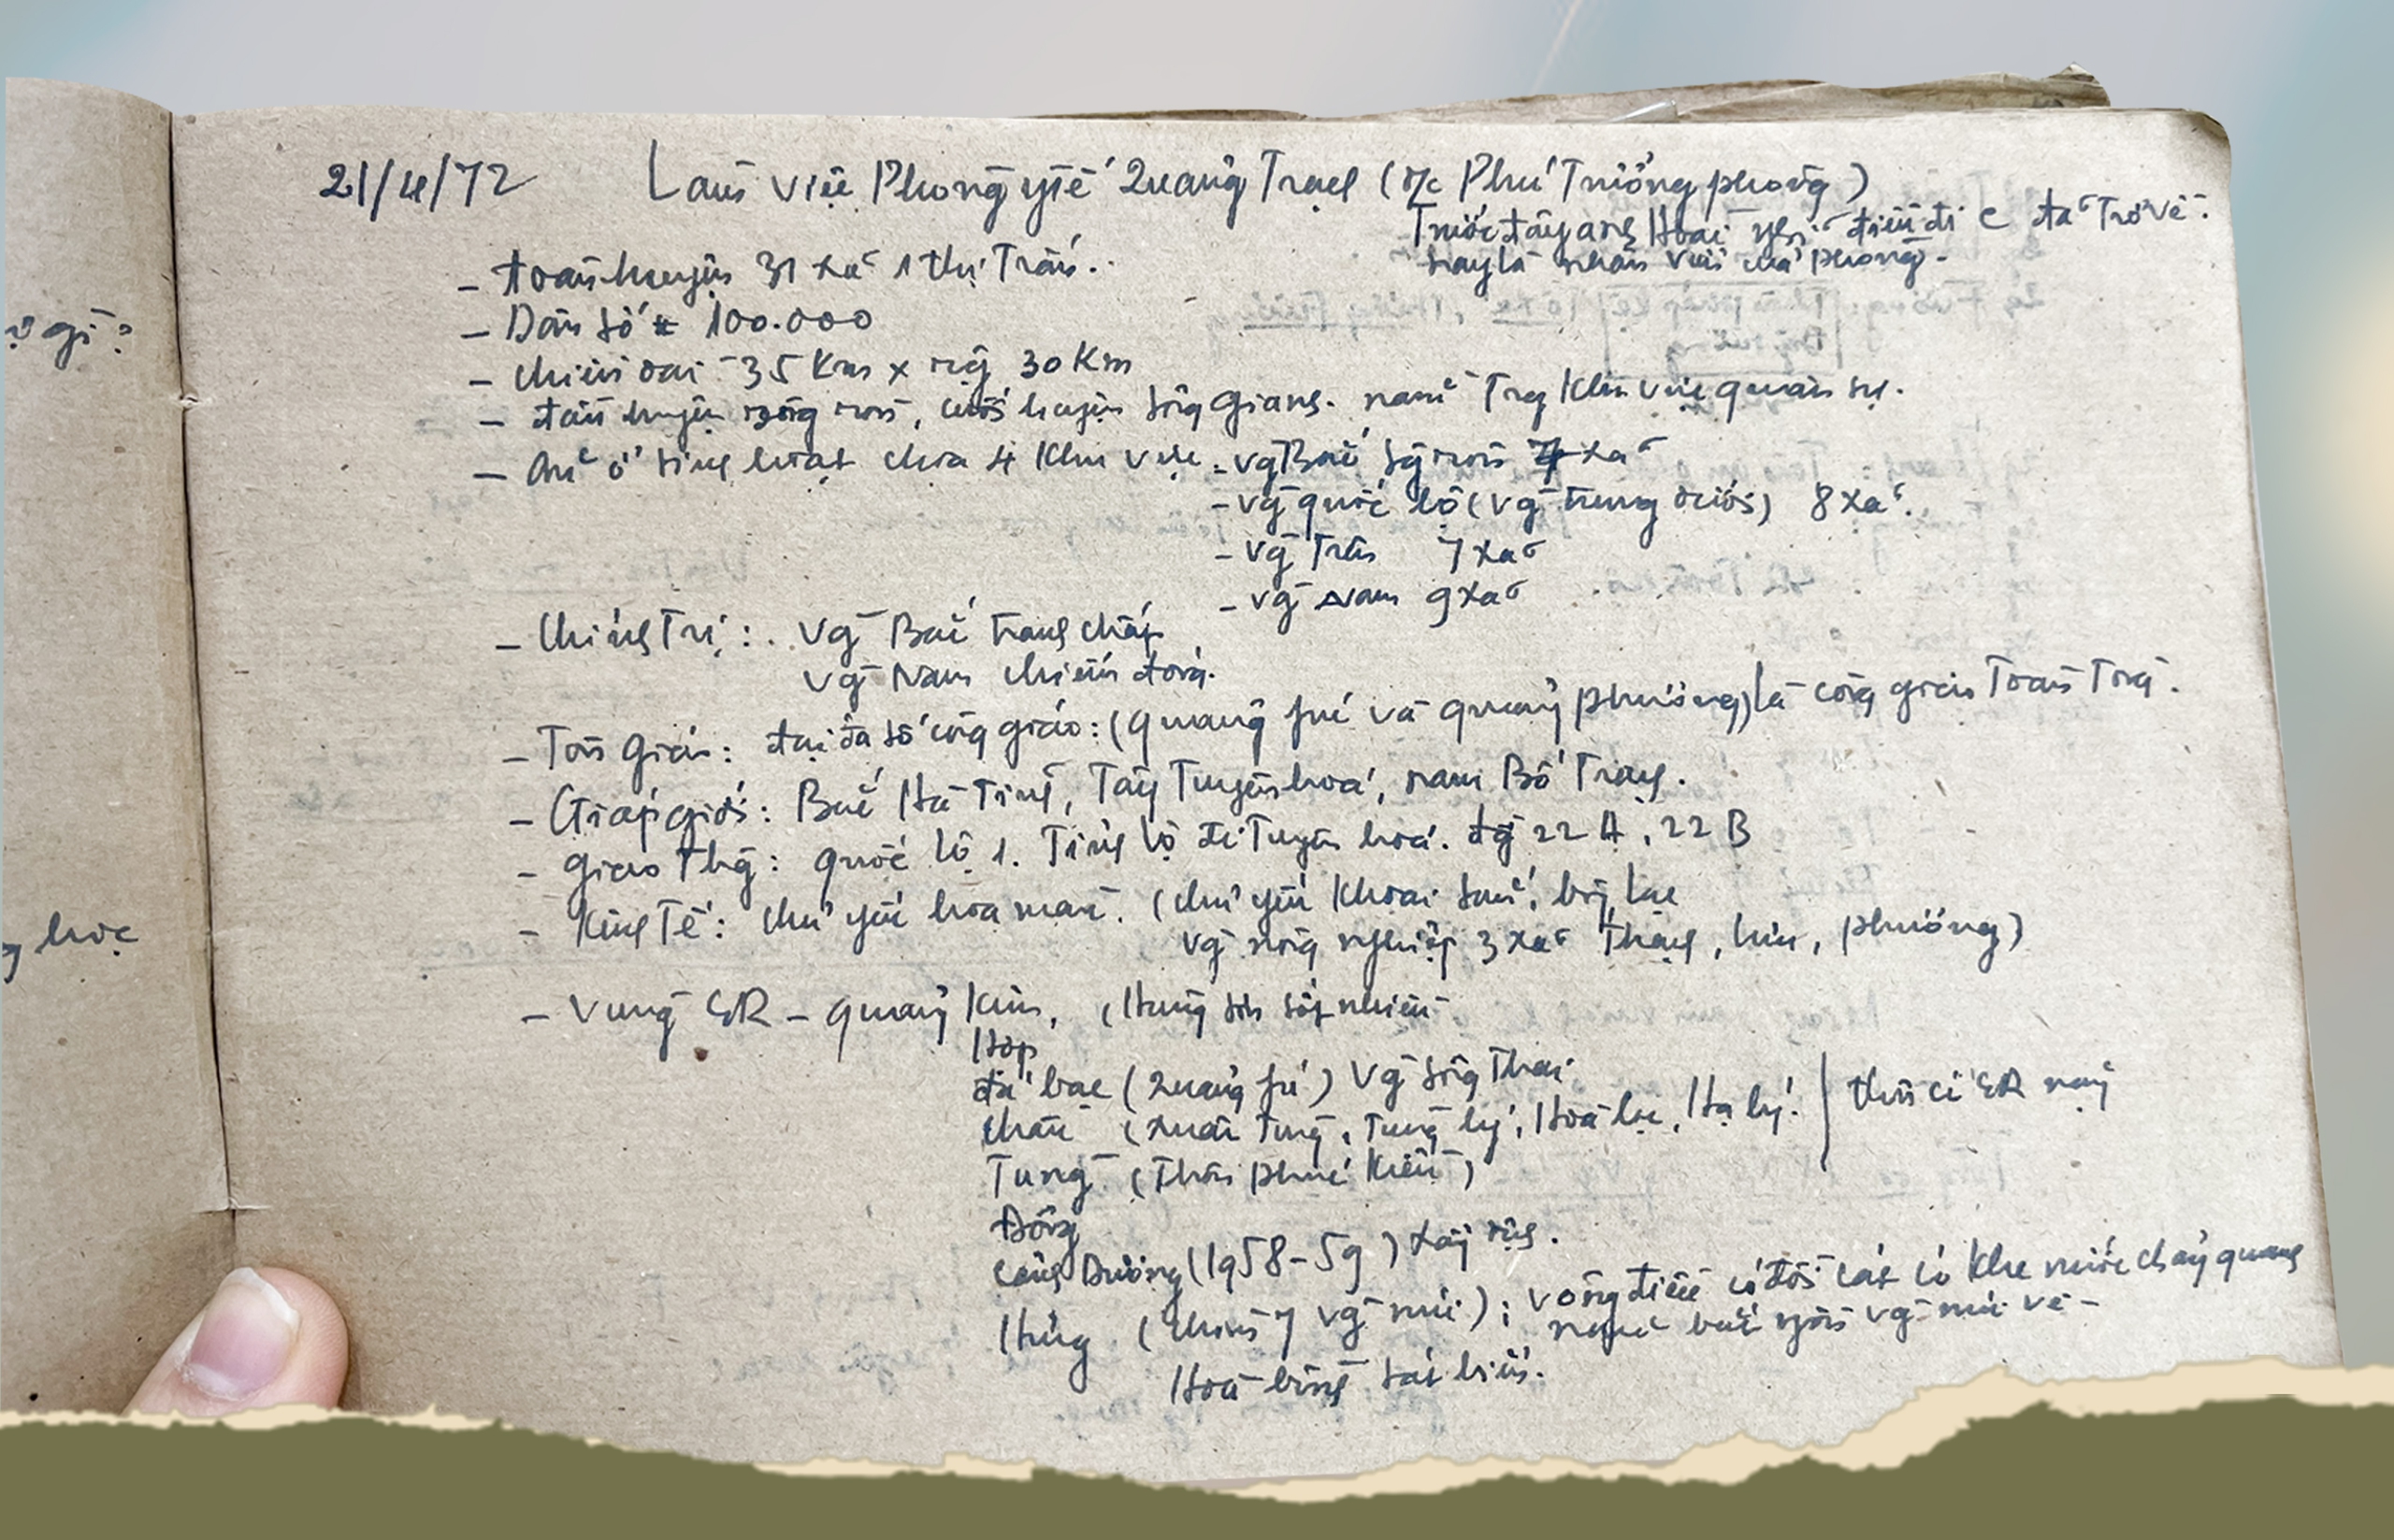 ở gì?
g học
21/4/72 Làm việc Phòng y tế Quảng Trạch (đ/c Phú Trưởng phòng)
Trước đây anh Hoài y sĩ điều đi C đã trở về.
nay là nhân viên của phòng.
- toàn huyện 31 xã 1 thị Trấn.
- Dân số 100.000
- chiều dài 35 Km x rộg 30 Km
- đầu huyện sông ròn, cuối huyện sôg Gianh. nằm Trog Khu vực quân sự.
- Ăn ở sinh hoạt chia 4 Khu vực - vg Bắc sg ròn 7 xã
- vg quốc lộ (vg trung điểm) 8 xã.
- vg Trên 7 xã
- vg Nam 9 xã
- Chính Trị: vg Bắc tranh chấp
vg Nam chiếm đóng.
- Tôn Giáo: đại đa số côg giáo: (quảng fúc và quảng phương) là côg giáo Toàn Tòg.
- Giáp giới: Bắc Hà Tĩnh, Tây Tuyên hoá, nam Bố Trạch.
- Giao Thôg: quốc lộ 1. Tỉnh lộ đi Tuyên hoá. đg 22 A, 22 B
- Kinh Tế: chủ yếu hoa màu. (chủ yếu Khoai sắn, bôg lạc
vg nôg nghiệp 3 xã Thạch, lưu, phương)
- Vùng SR - quảng Kim, (Hùng sơn sốt nhiều
Hợp
đá bạc (Quảng fú) vg sôg Thai
châu (xuân tùng, Tùng lý, Hoà lạc, Hạ lý. | thôn có SR nay
Tùng (Thôn phúc kiều)
Đôg
Cảnh Dương (1958-59) xảy dịch.
Hưng (thôn 7 vg núi): vòg điều có đồi cát có khe nước chảy quanh
người bắt vg núi về
Hoà bình sát biển.